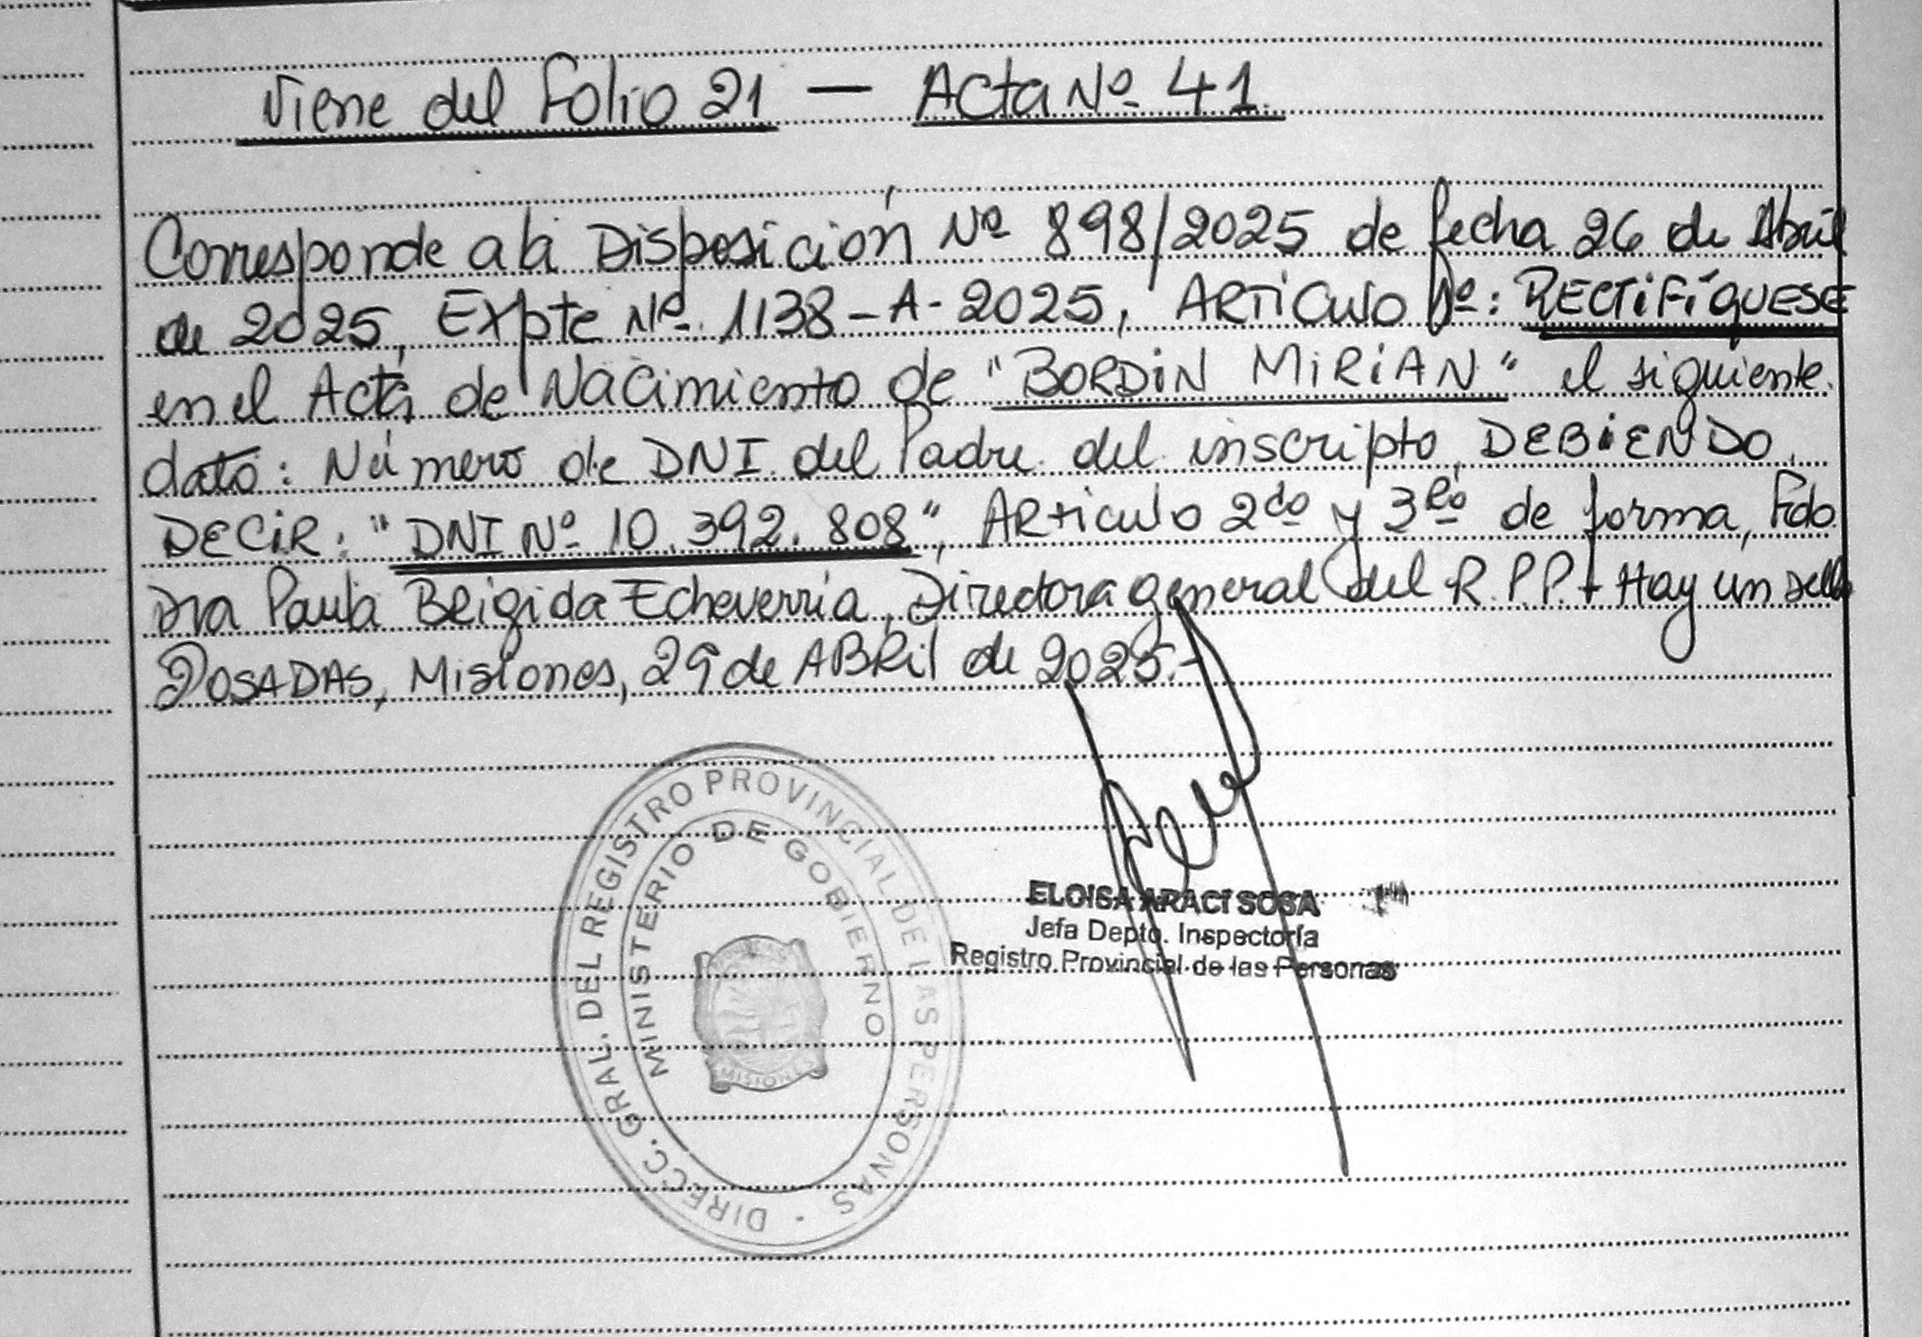 Viene del Folio 21 — Acta Nº 41.
Corresponde a la Disposición Nº 898/2025 de fecha 26 de Abril
de 2025, Expte Nº 1138-A-2025, ARTiculo 1º: RECTiFíQUESE
en el Acta de Nacimiento de "BORDiN MiRiAN" el siguiente
dato: Número de DNI del Padre del inscripto, DEBiENDO
DECiR: "DNI Nº 10.392.808", ARticulo 2do y 3Ro de forma, Fdo
Dra Paula BRigida Echeverria, Directora general del R.P.P. + Hay un sello
POSADAS, Misiones, 29 de ABRil de 2025.-
DIRECC. GRAL. DEL REGISTRO PROVINCIAL DE LAS PERSONAS
MINISTERIO DE GOBIERNO
MISIONES
ELOISA ARACI SOSA
Jefa Depto. Inspectoría
Registro Provincial de las Personas